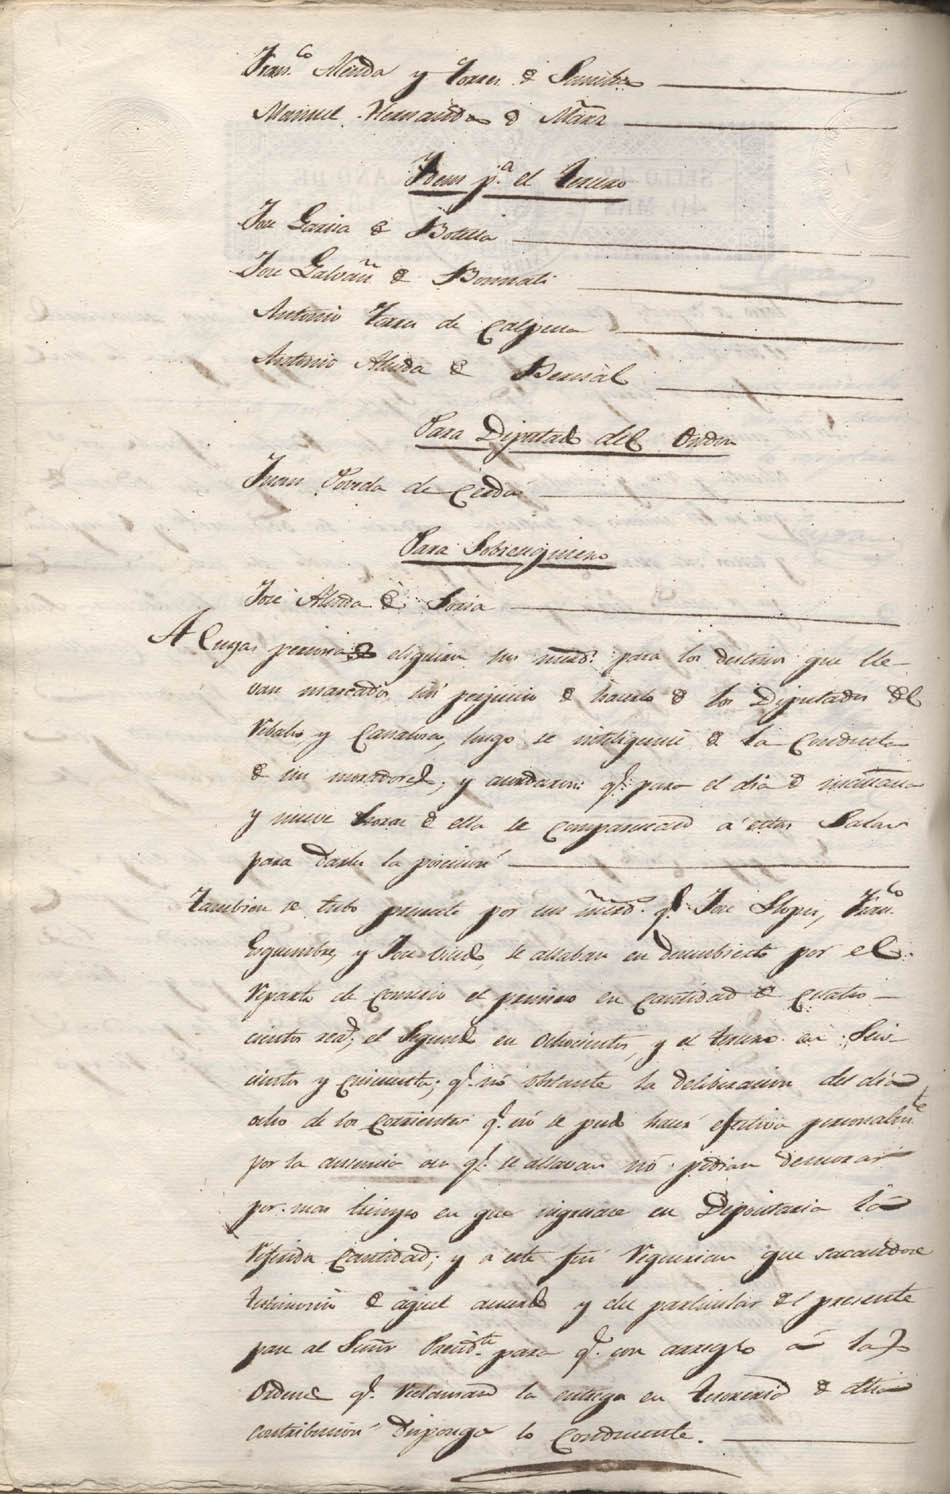 Fran.co Alenda y Torres de
Manuel Hernandez d
Idem p.a el tercero
Jose Garcia de Botella
Jose Galvañ de Bonmati
Antonio Torres de Calpena
Antonio Alenda de Bernal
Para Diputado del Orden
Juan Poveda de Cerdá
Para Sobreceguiero
José Alenda de Soria
A Cuyas personas eligieron sus mrds. para los destinos que lle-
van marcados sin perjuicio de hacerlo de los Diputados del
Rebalso y Carralosa, luego se inteligencie de la Conducta
de sus moradores, y acordaron: q.e para el dia d mañana
y nueve horas de ella se comparezcan á estas Salas
para darles la posesion
Tambien se tubo presente por sus mrds. q.e Jose Llopis, Fran.co
Esquembre, y Jose se allaban en descubierto por el
reparto de consumo el primero en cantidad de cuatro-
cientos rea.s, el Segundo en Ochocientos, y el tercero en Seis-
cientos y cincuenta; q.e no obstante la deliberacion del dia
ocho de los corrientes q.e no se pudo hacer efectiva personalm.te
por la ausencia en q.e se allavan no podian demorar
por mas tiempo en que ingrese en Depositaria la
referida Cantidad; y á este fin requerian que sacandose
testimonio de aquel acuerdo y del particular del presente
pase al Señor Presid.te para q.e con arreglo á las
Ordenes q.e reclaman la entrega en Tesoreria de dha
contribucion disponga lo Conducente.